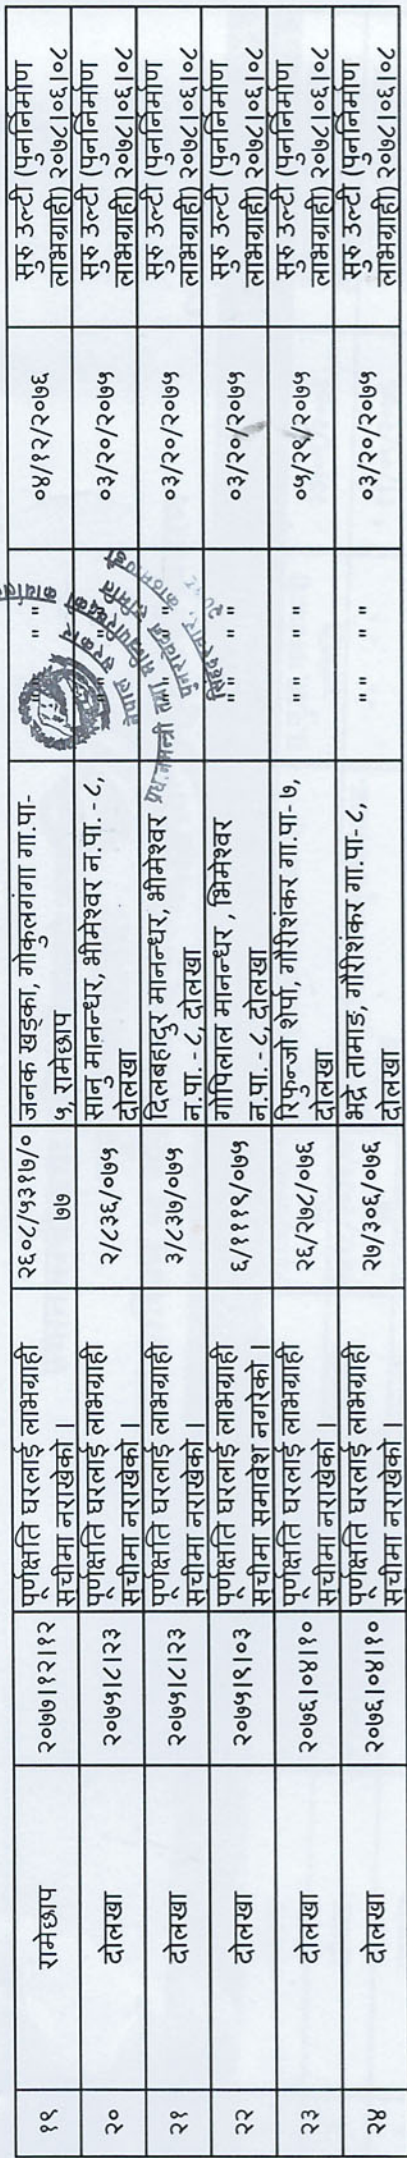 १९ रामेछाप २०७७।१२।१२ पूर्णक्षति घरलाई लाभग्राही सूचीमा नराखेको । २६०८/५३१७/०७७ जनक खड्का, गोकुलगंगा गा.पा-५, रामेछाप " " ०४/१२/२०७६ सुरु उल्टी (पुनर्निर्माण लाभग्राही) २०७८।०६।०८
२० दोलखा २०७५।८।२३ पूर्णक्षति घरलाई लाभग्राही सूचीमा नराखेको । २/८३६/०७५ सानु मानन्धर, भीमेश्वर न.पा. - ८, दोलखा ०३/२०/२०७५ सुरु उल्टी (पुनर्निर्माण लाभग्राही) २०७८।०६।०८
२१ दोलखा २०७५।८।२३ पूर्णक्षति घरलाई लाभग्राही सूचीमा नराखेको । ३/८३७/०७५ दिलबहादुर मानन्धर, भीमेश्वर न.पा. - ८, दोलखा ०३/२०/२०७५ सुरु उल्टी (पुनर्निर्माण लाभग्राही) २०७८।०६।०८
२२ दोलखा २०७५।९।०३ पूर्णक्षति घरलाई लाभग्राही सूचीमा समावेश नगरेको । ६/१११९/०७५ गोपिलाल मानन्धर , भिमेश्वर न.पा. - ८, दोलखा " " ०३/२०/२०७५ सुरु उल्टी (पुनर्निर्माण लाभग्राही) २०७८।०६।०८
२३ दोलखा २०७६।०४।१० पूर्णक्षति घरलाई लाभग्राही सूचीमा नराखेको । २६/२७८/०७६ रिफुन्जो शेर्पा, गौरीशंकर गा.पा- ७, दोलखा " " ०५/२९/२०७५ सुरु उल्टी (पुनर्निर्माण लाभग्राही) २०७८।०६।०८
२४ दोलखा २०७६।०४।१० पूर्णक्षति घरलाई लाभग्राही सूचीमा नराखेको । २७/३०६/०७६ भद्रे तामाङ, गौरीशंकर गा.पा- ८, दोलखा " " ०३/२०/२०७५ सुरु उल्टी (पुनर्निर्माण लाभग्राही) २०७८।०६।०८
नेपाल सरकार
प्रधानमन्त्री तथा मन्त्रिपरिषद्को कार्यालय
पुनरावेदन समिति
सिंहदरबार, काठमाण्डौ